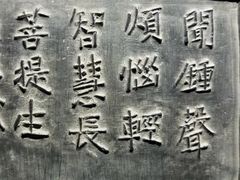 聞鍾聲
煩惱輕
智慧長
菩提生